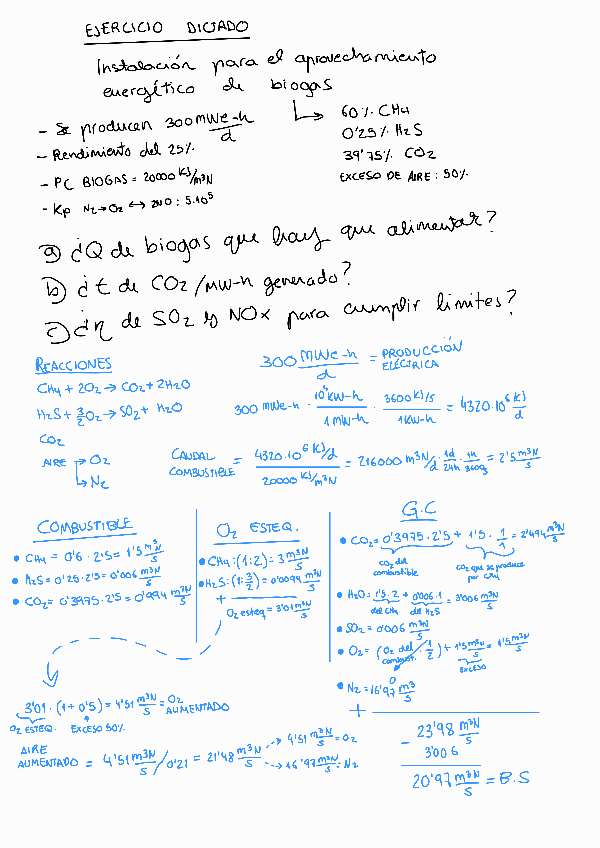 EJERCICIO DICTADO
Instalación para el aprovechamiento
energético de biogas
60% CH4
0'25% H2S
39'75% CO2
EXCESO DE AIRE: 50%
- Se producen 300 MWe-h/d
- Rendimiento del 25%
- PC BIOGAS = 20000 KJ/m³N
- Kp N2→O2 ↔ 2NO : 5·10⁵
a) ¿Q de biogas que hay que alimentar?
b) ¿t de CO2/MW-h generado?
c) ¿η de SO2 y NOx para cumplir limites?
REACCIONES
CH4 + 2O2 → CO2 + 2H2O
H2S + 3/2 O2 → SO2 + H2O
CO2
AIRE → O2
→ N2
300 MWe-h/d = PRODUCCIÓN ELÉCTRICA
300 MWe-h · 10⁴ KW-h/1 MW-h · 3600 KJ/s/1 KW-h = 4320·10⁶ KJ/d
CAUDAL COMBUSTIBLE = 4320·10⁶ KJ/d / 20000 KJ/m³N = 216000 m³N/d · 1d/24h · 1h/3600s = 2'5 m³N/s
COMBUSTIBLE
• CH4 = 0'6 · 2'5 = 1'5 m³/s
• H2S = 0'25 · 2'5 = 0'006 m³N/s
• CO2 = 0'3975 · 2'5 = 0'994 m³N/s
O2 ESTEQ.
• CH4 : (1:2) = 3 m³N/s
• H2S : (1:3/2) = 0'0094 m³N/s
+
O2 esteq = 3'01 m³N/s
G.C
• CO2 = 0'3975 · 2'5 + 1'5 · 1/1 = 2'494 m³N/s
CO2 del combustible
CO2 que se produce por CH4
• H2O = 1'5 · 2 + 0'006 · 1 = 3'006 m³N/s
del CH4 del H2S
• SO2 = 0'006 m³N/s
• O2 = (O2 del combust. · 1/2) + 1'5 m³N/s = 1'5 m³N/s
0
EXCESO
• N2 = 16'97 m³/s
+
23'98 m³N/s
- 3'006
20'97 m³N/s = B.S
3'01 · (1 + 0'5) = 4'51 m³N/s = O2 AUMENTADO
O2 ESTEQ. EXCESO 50%
AIRE AUMENTADO = 4'51 m³N/s / 0'21 = 21'48 m³N/s
→ 4'51 m³N/s = O2
→ 16'97 m³N/s = N2